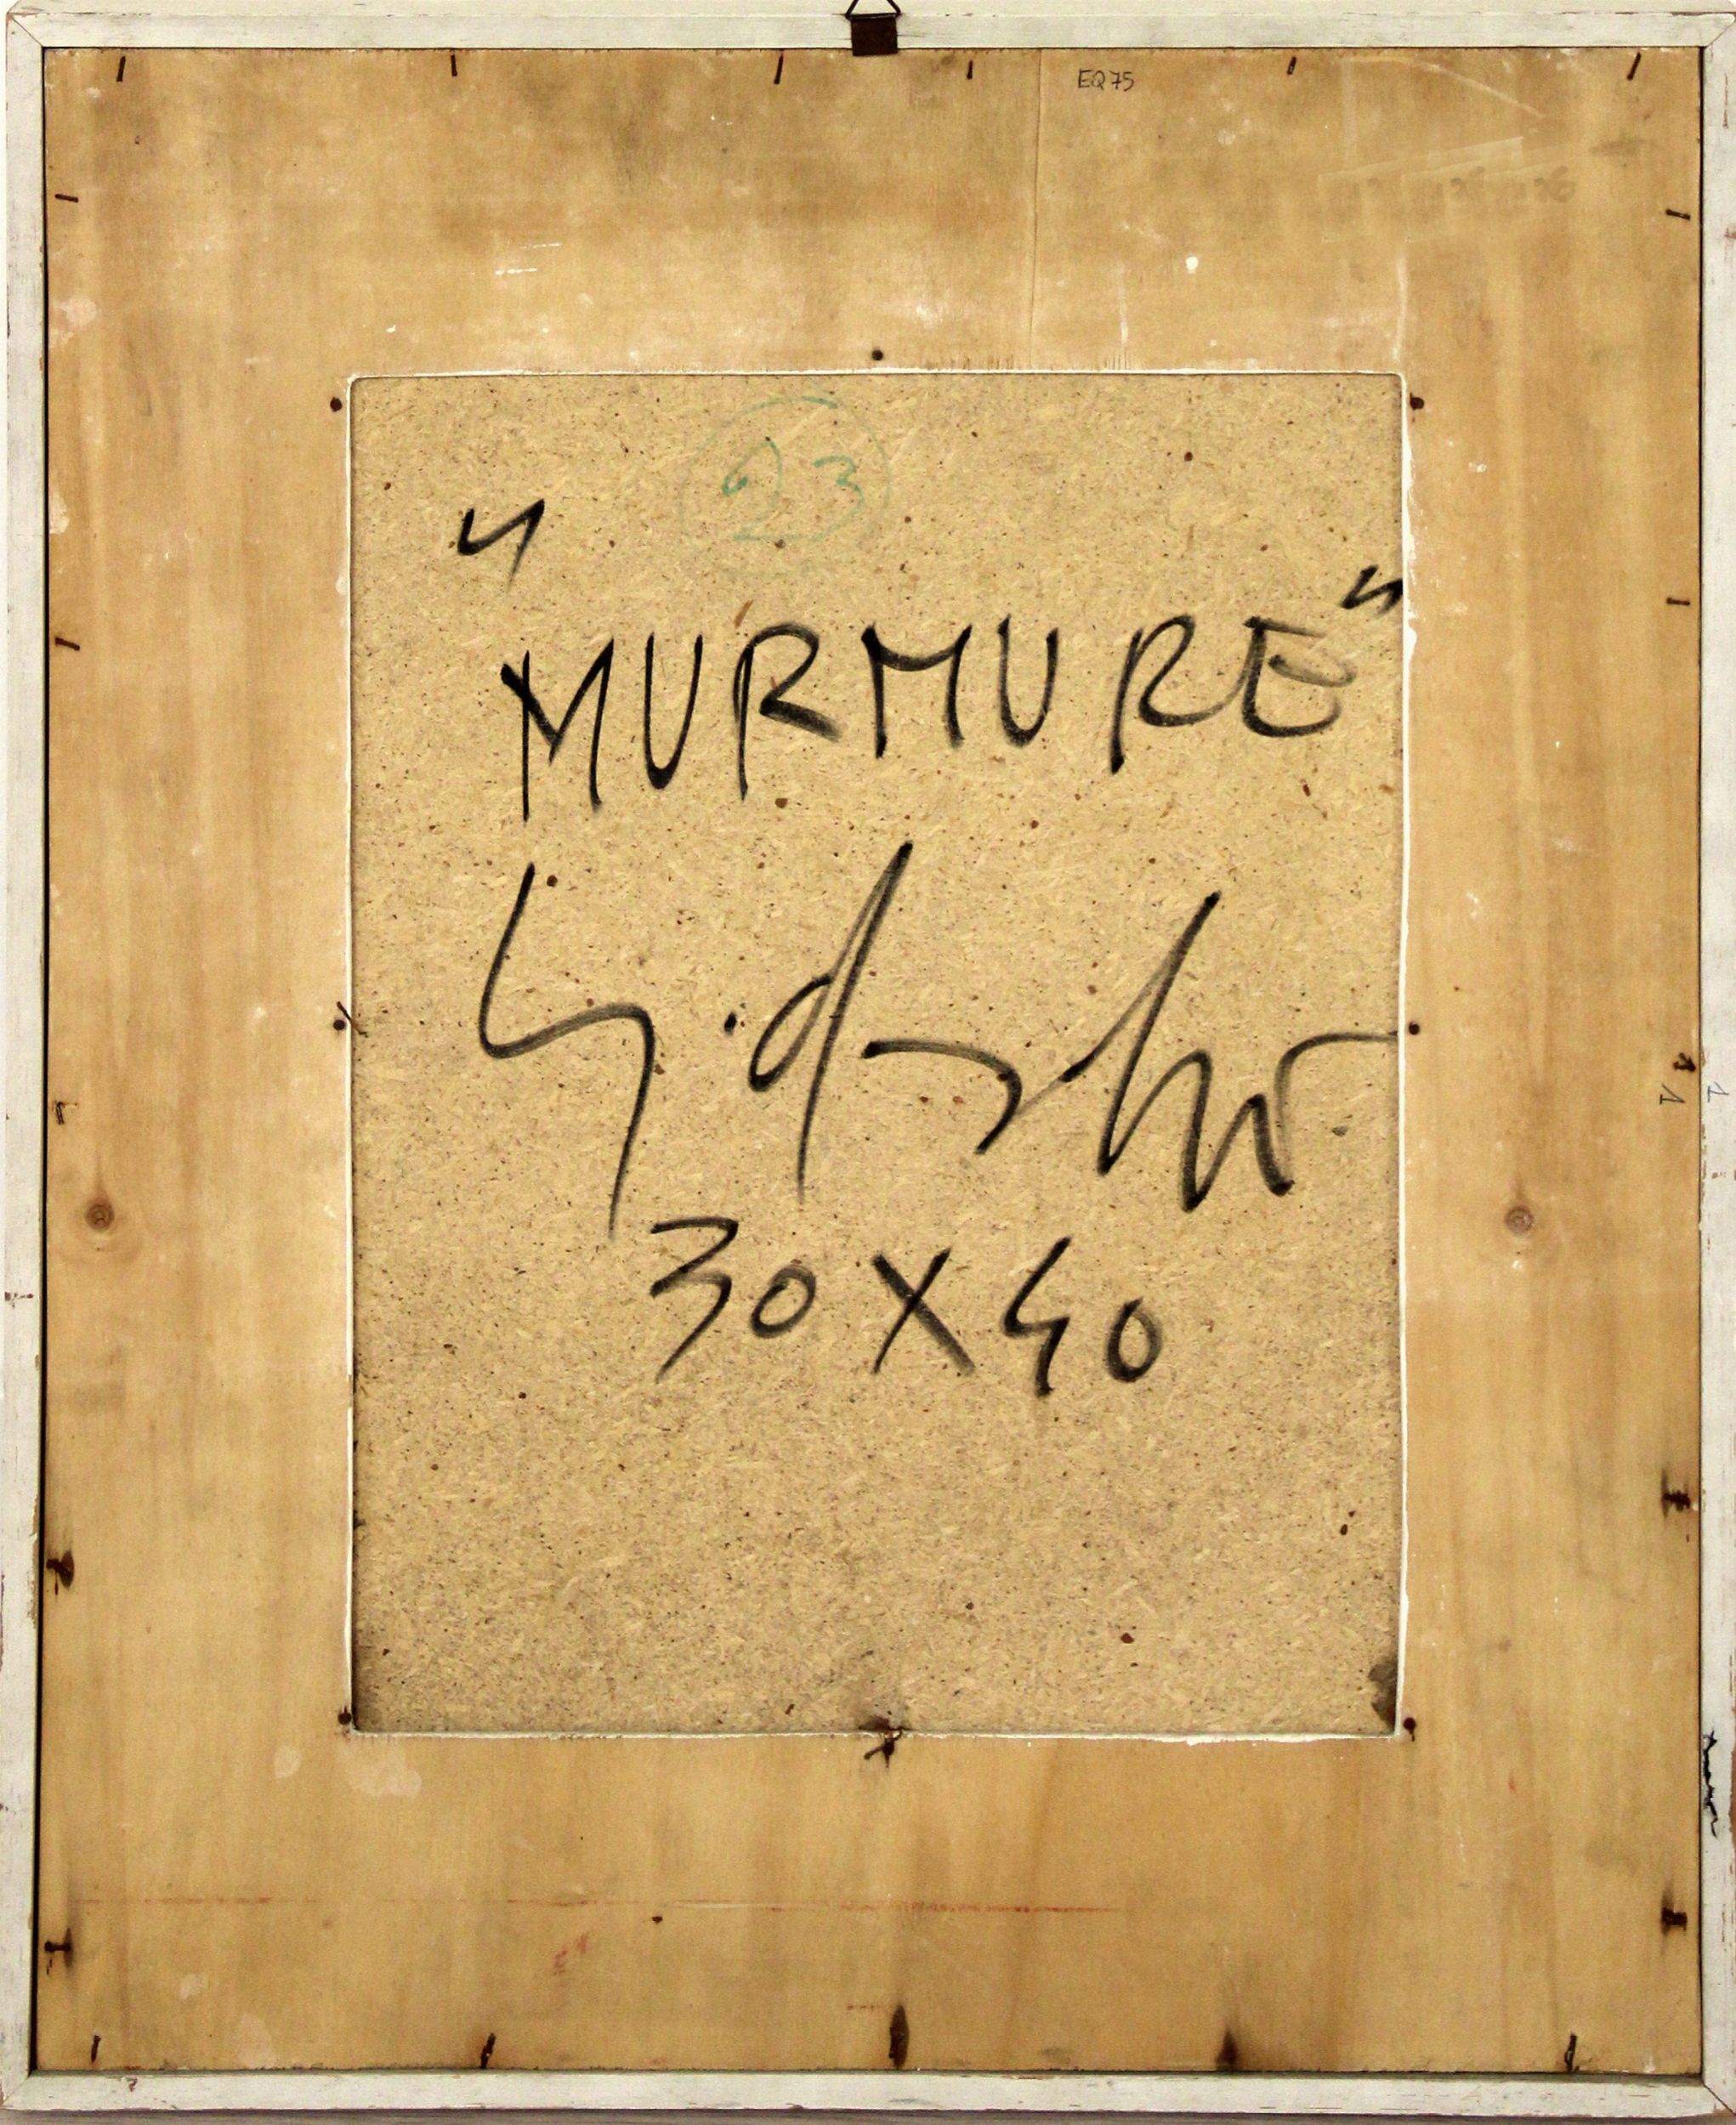 EQ75
23
"MURMURE"
30 X 40
1
1